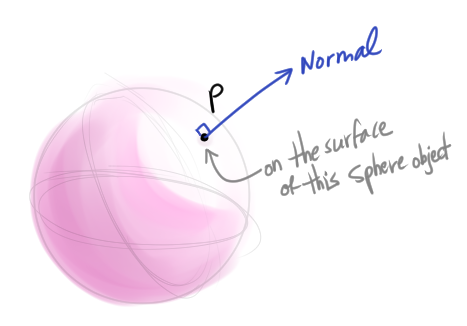 Normal
P
on the surface
of this sphere object